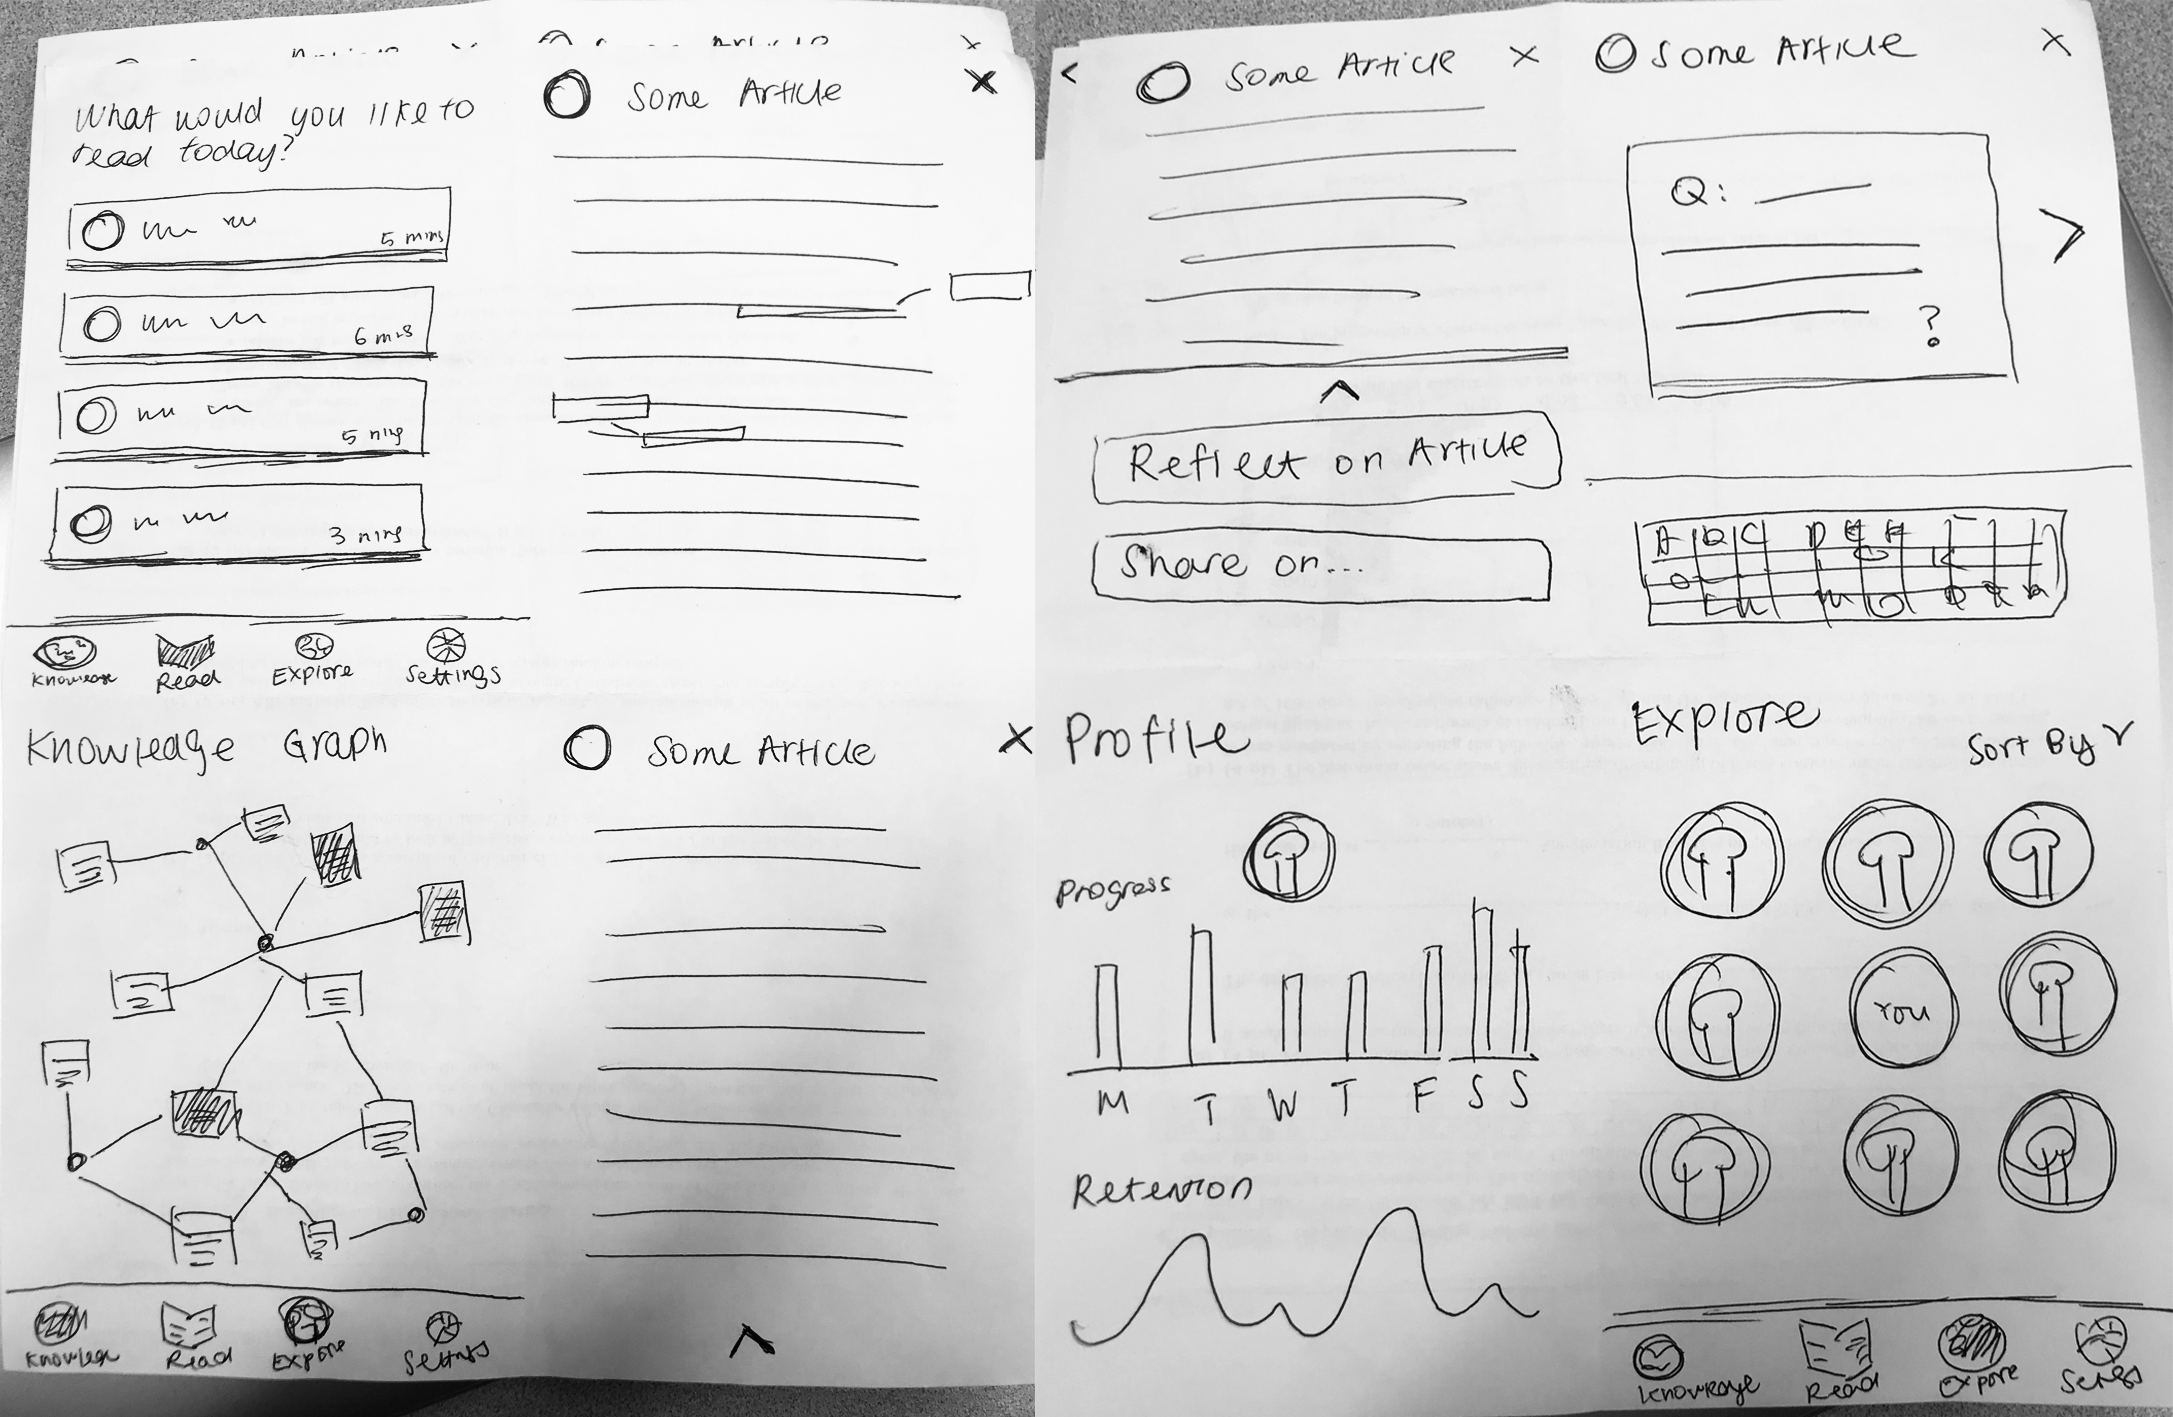 What would you like to
read today?
5 mins
6 mis
5 mins
3 mins
Knowledge
Read
Explore
Settings
Some Article
X
< Some Article X
Reflect on Article
Share on...
Some Article X
Q:
?
>
Knowledge Graph
Knowledge
Read
Explore
Settings
Some Article X
Profile
Progress
M T W T F S S
Retention
Explore
Sort By
You
Knowledge
Read
Expore